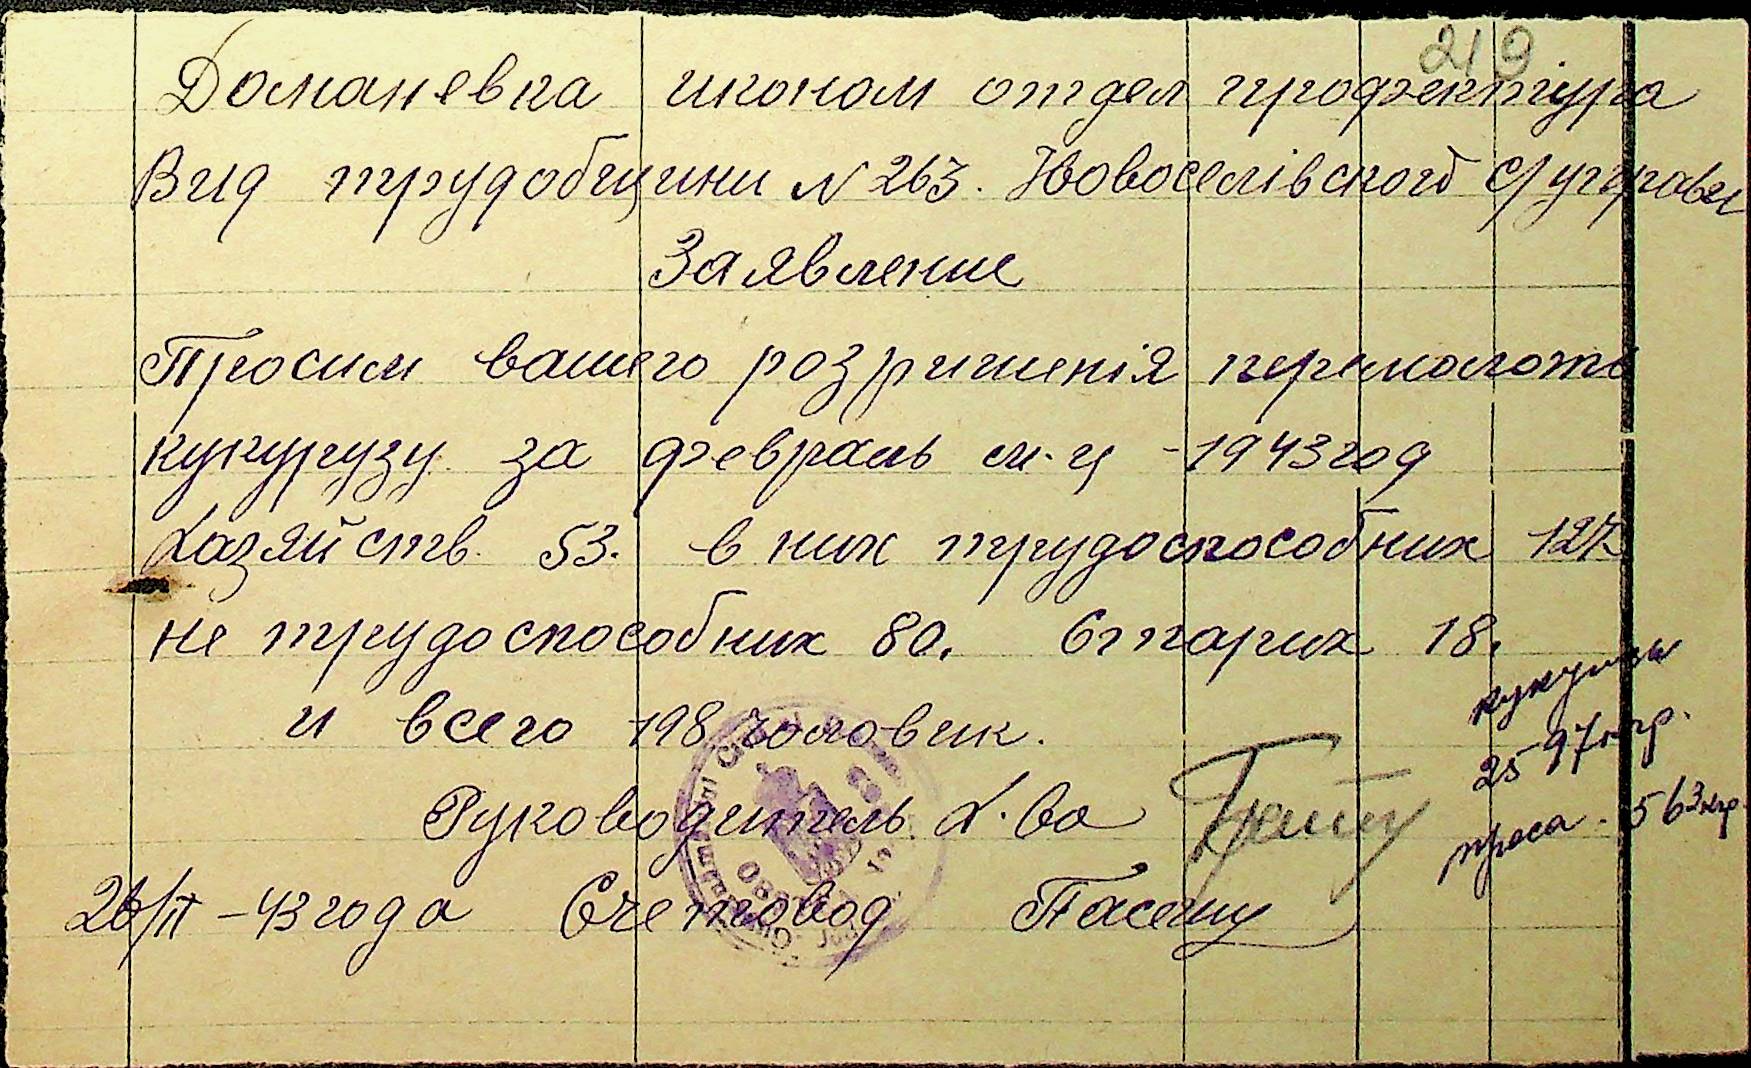 219
Доманевка иконом отдел профектіура
Вид трудобщини № 263. Новоселівской с/управи
Заявление
Просим вашего розришенія перемолоть
кукурузу за февраль м-ц - 1943 год
Хазяйств. 53. в них трудоспособних
не трудоспособних 80. Старих 18.
и всего 198 чоловик.
Руководитель Х-ва
26/II - 43 года Счетовод
2597 кгр.
проса. 563 кгр.